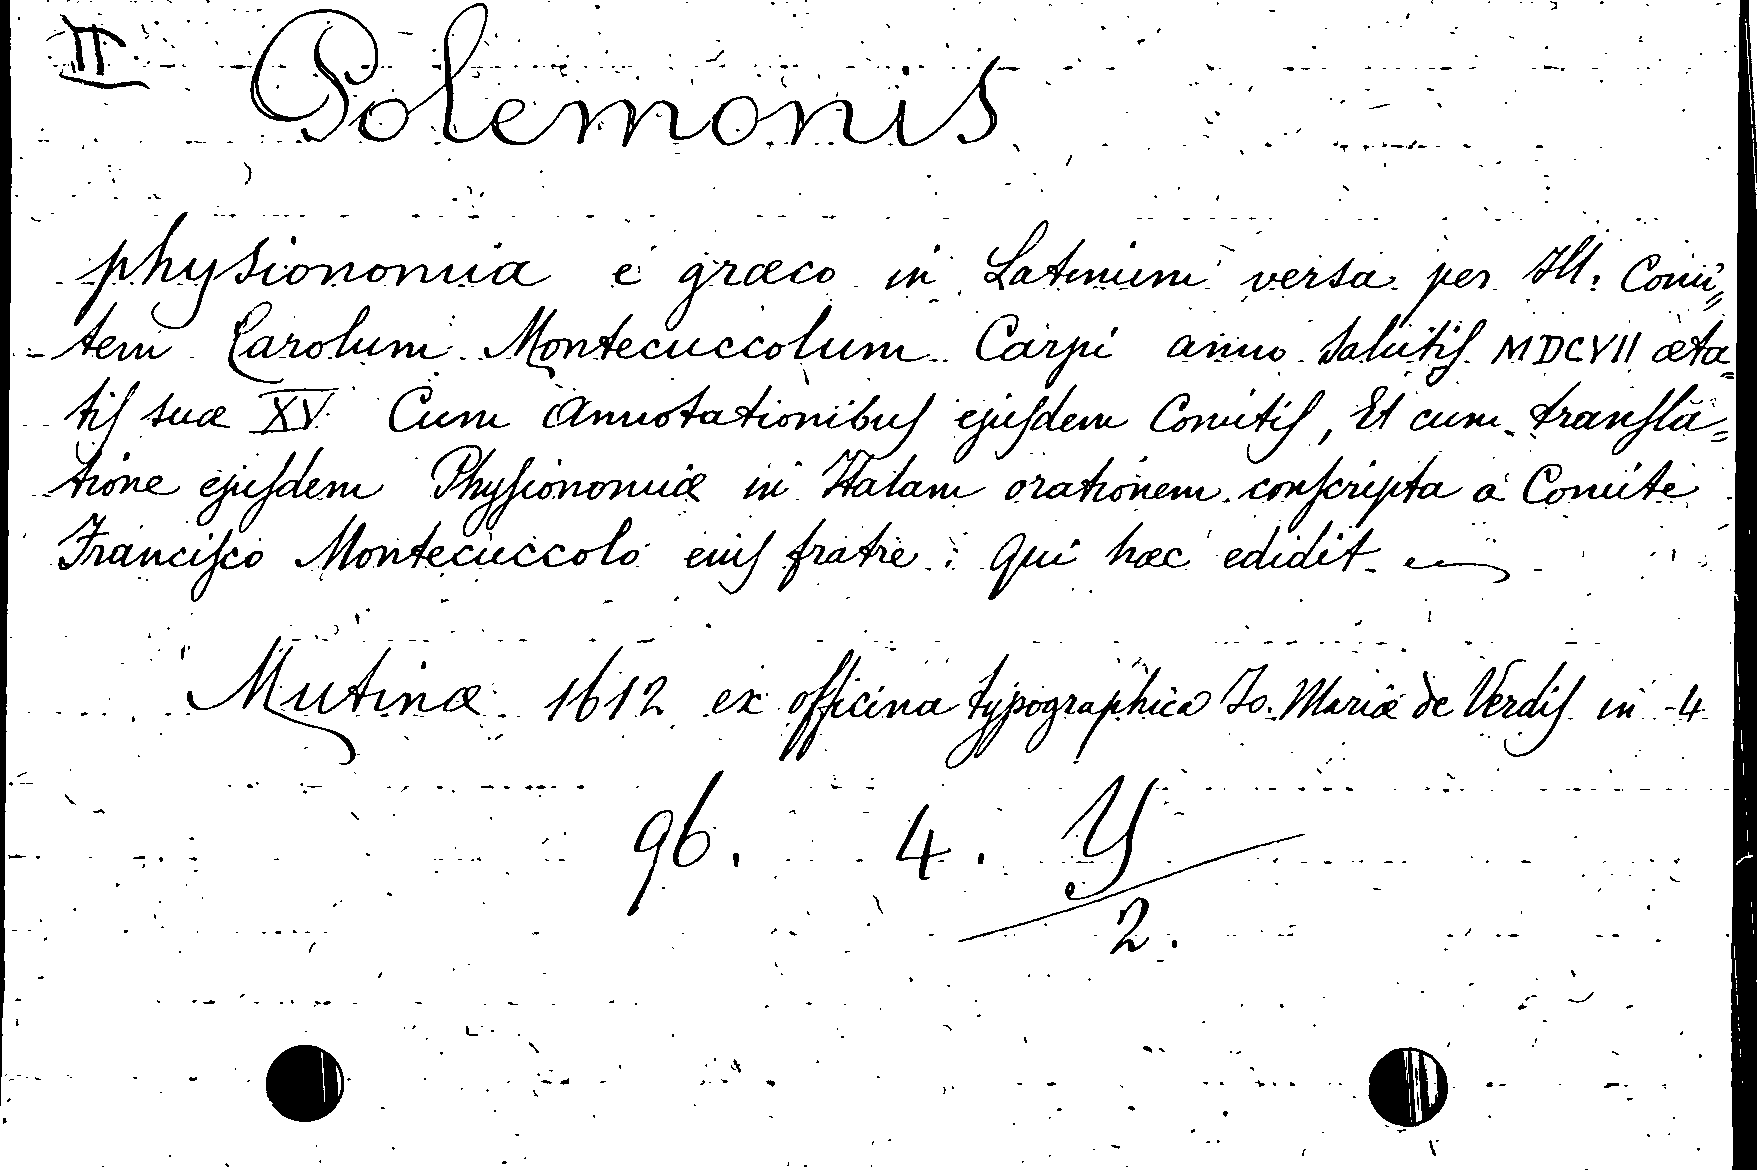 II Polemonis
physionomia e græco in Latinum versa per Ill: Comi„
tem Carolum Montecuccolum Carpi anno salutis MDCVII æta„
tis suæ XV Cum Annotationibus ejusdem Comitis, Et cum transla„
tione ejusdem Physionomiæ in Italam orationem conscripta a Comite
Francisco Montecuccolo eius fratre : Qui hæc edidit
Mutinæ 1612 ex officina typographica Jo. Mariæ de Verdis in 4
96. 4. Y
2.